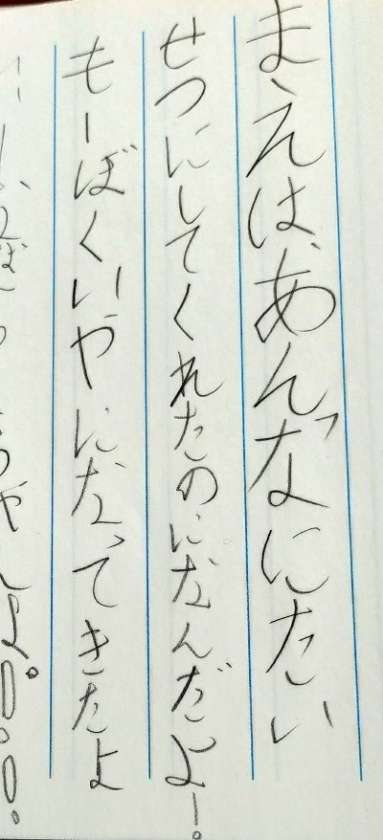 まえは、あんなにたい
せつにしてくれたのになんだよー。
もーぼくいやになってきたよ